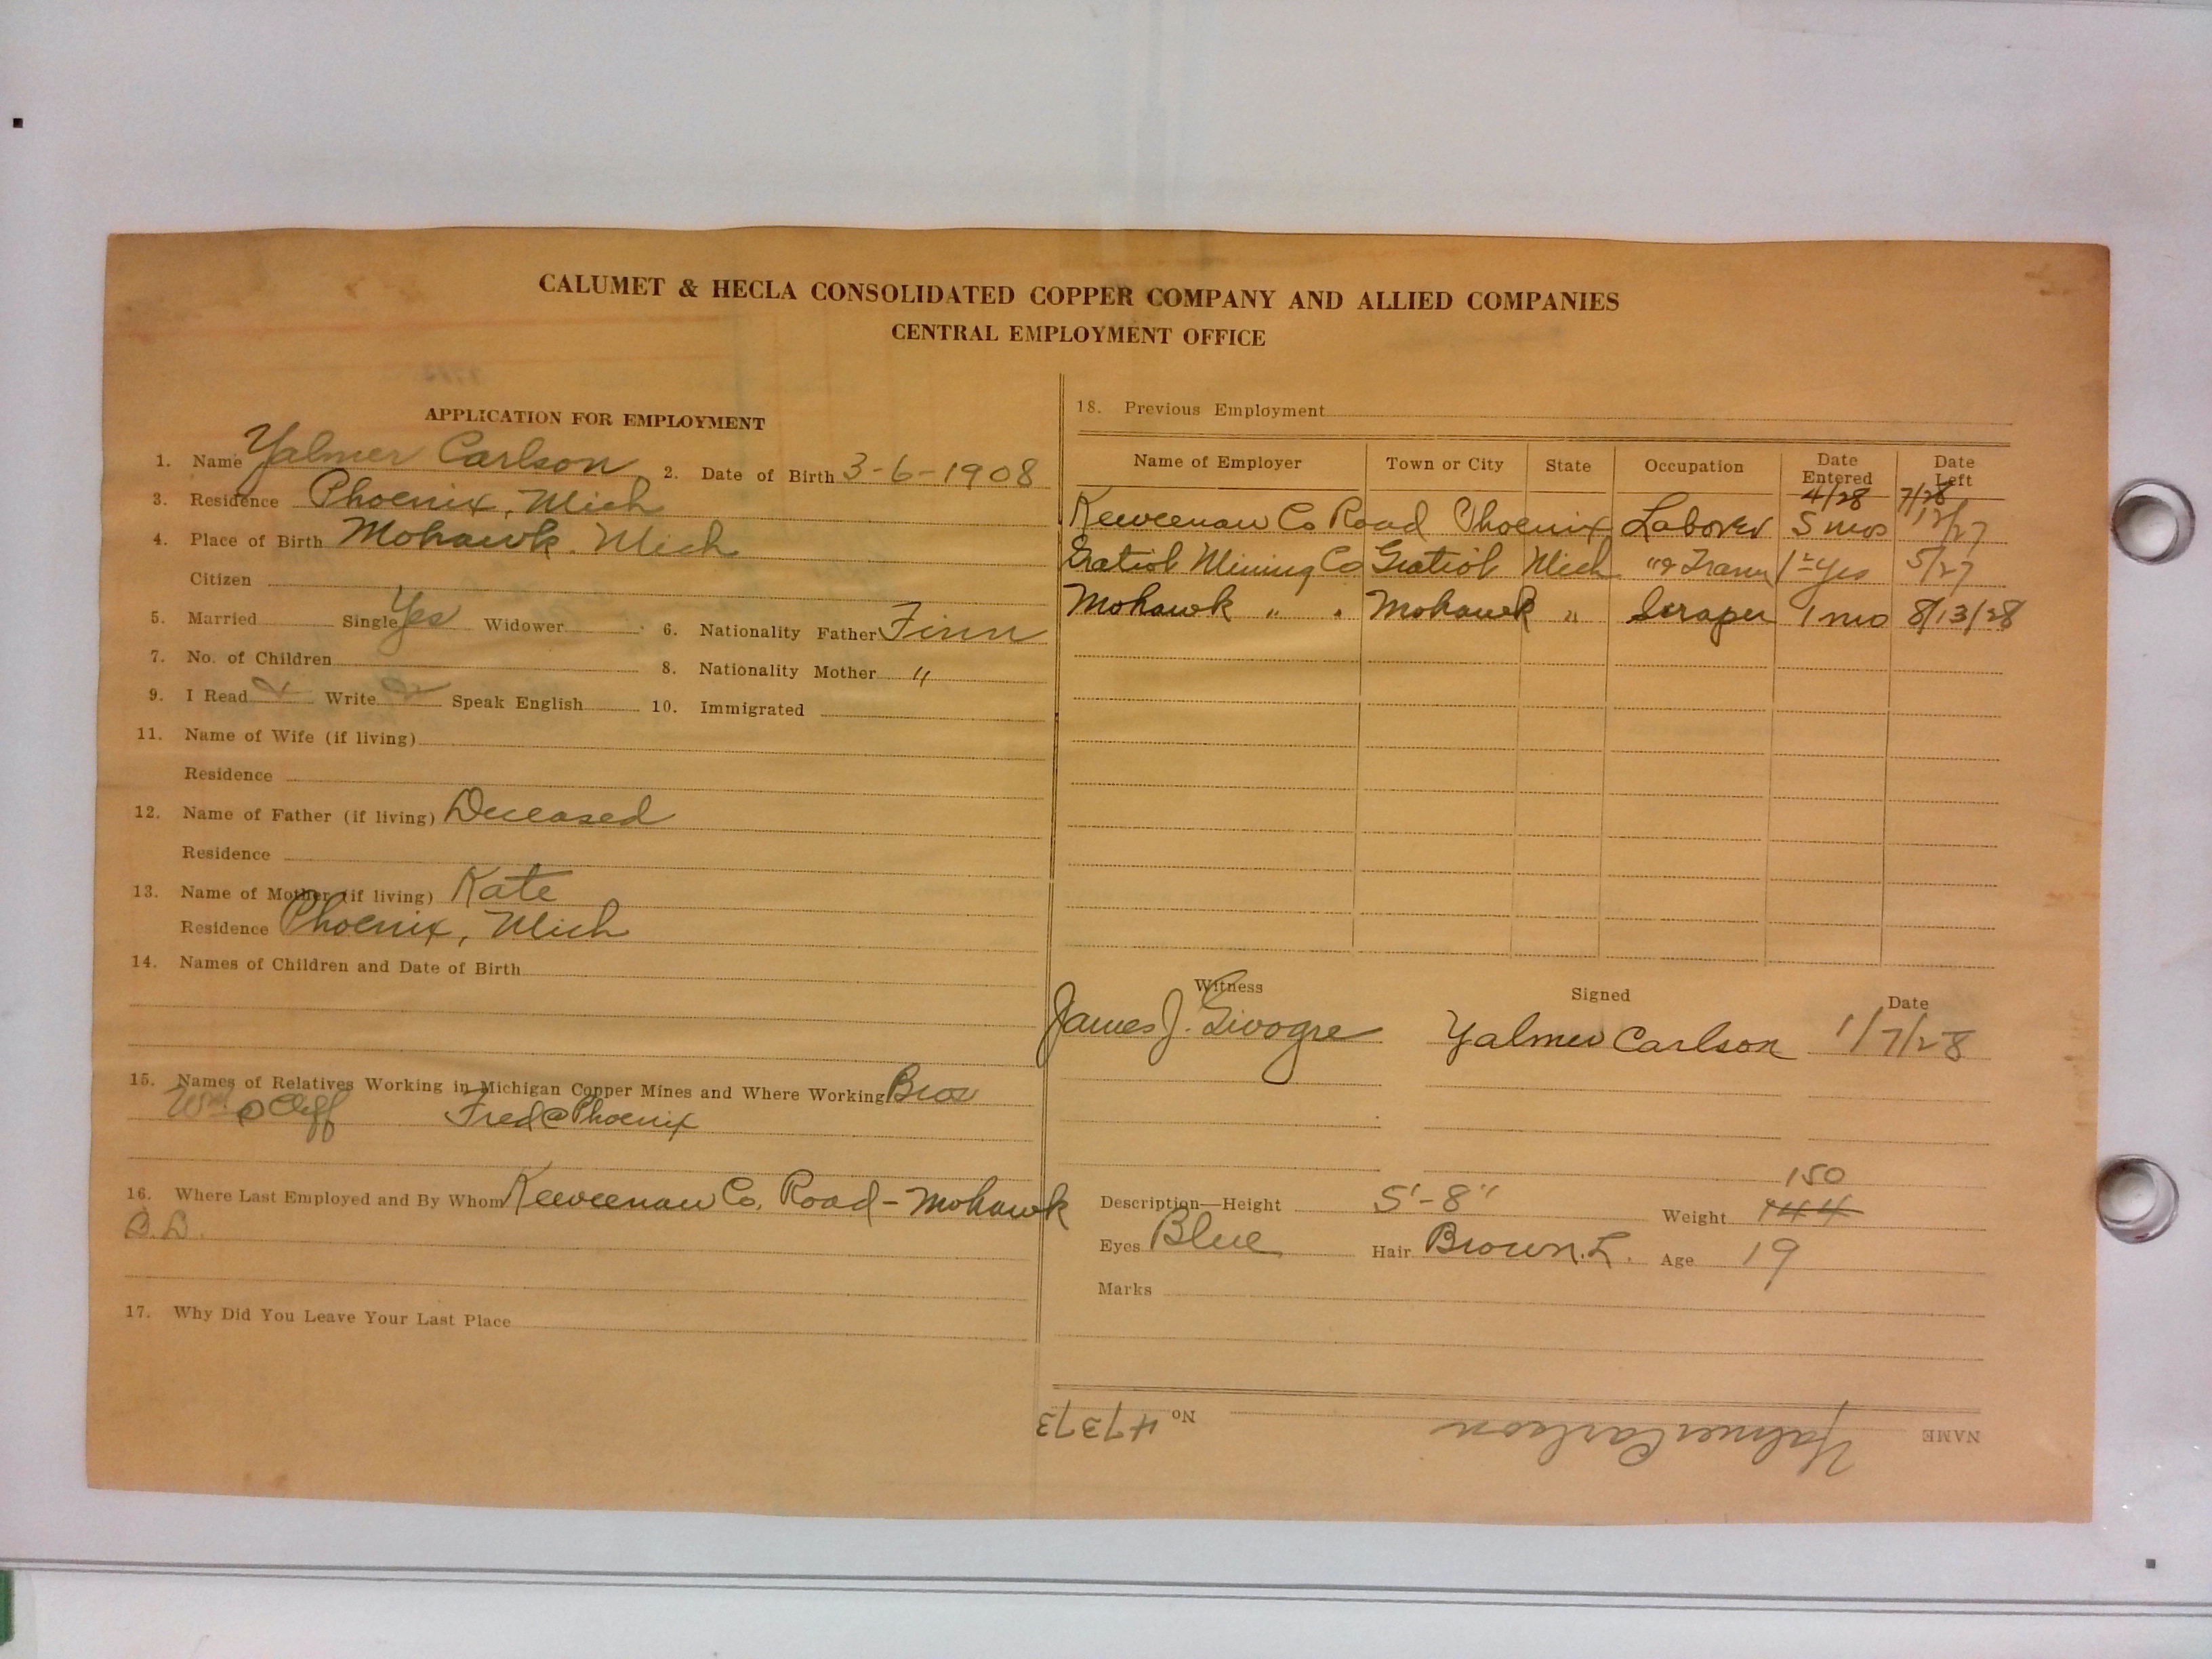 CALUMET & HECLA CONSOLIDATED COPPER COMPANY AND ALLIED COMPANIES
CENTRAL EMPLOYMENT OFFICE
APPLICATION FOR EMPLOYMENT
1. Name Yalmer Carlson 2. Date of Birth 3-6-1908
3. Residence Phoenix, Mich
4. Place of Birth Mohawk. Mich
Citizen
5. Married Single Yes Widower 6. Nationality Father Finn
7. No. of Children 8. Nationality Mother "
9. I Read Write Speak English 10. Immigrated
11. Name of Wife (if living)
Residence
12. Name of Father (if living) Deceased
Residence
13. Name of Mother (if living) Kate
Residence Phoenix, Mich
14. Names of Children and Date of Birth
15. Names of Relatives Working in Michigan Copper Mines and Where Working Bros
Wm @ Cliff Fred @ Phoenix
16. Where Last Employed and By Whom Keweenaw Co. Road - Mohawk
17. Why Did You Leave Your Last Place
18. Previous Employment
Name of Employer Town or City State Occupation Date Entered Date Left
4/28 7/28
Keweenaw Co Road Phoenix Laborer 5 mos 12/27
Gratiot Mining Co Gratiot Mich " & Tram 5/27
Mohawk " " Mohawk " Scraper 1 mo 8/13/28
Witness Signed Date
James J. Yalmer Carlson 1/7/28
150
Description—Height 5'-8" Weight 144
Eyes Blue Hair Brown. L. Age 19
Marks
NAME Yalmer Carlson No 47373